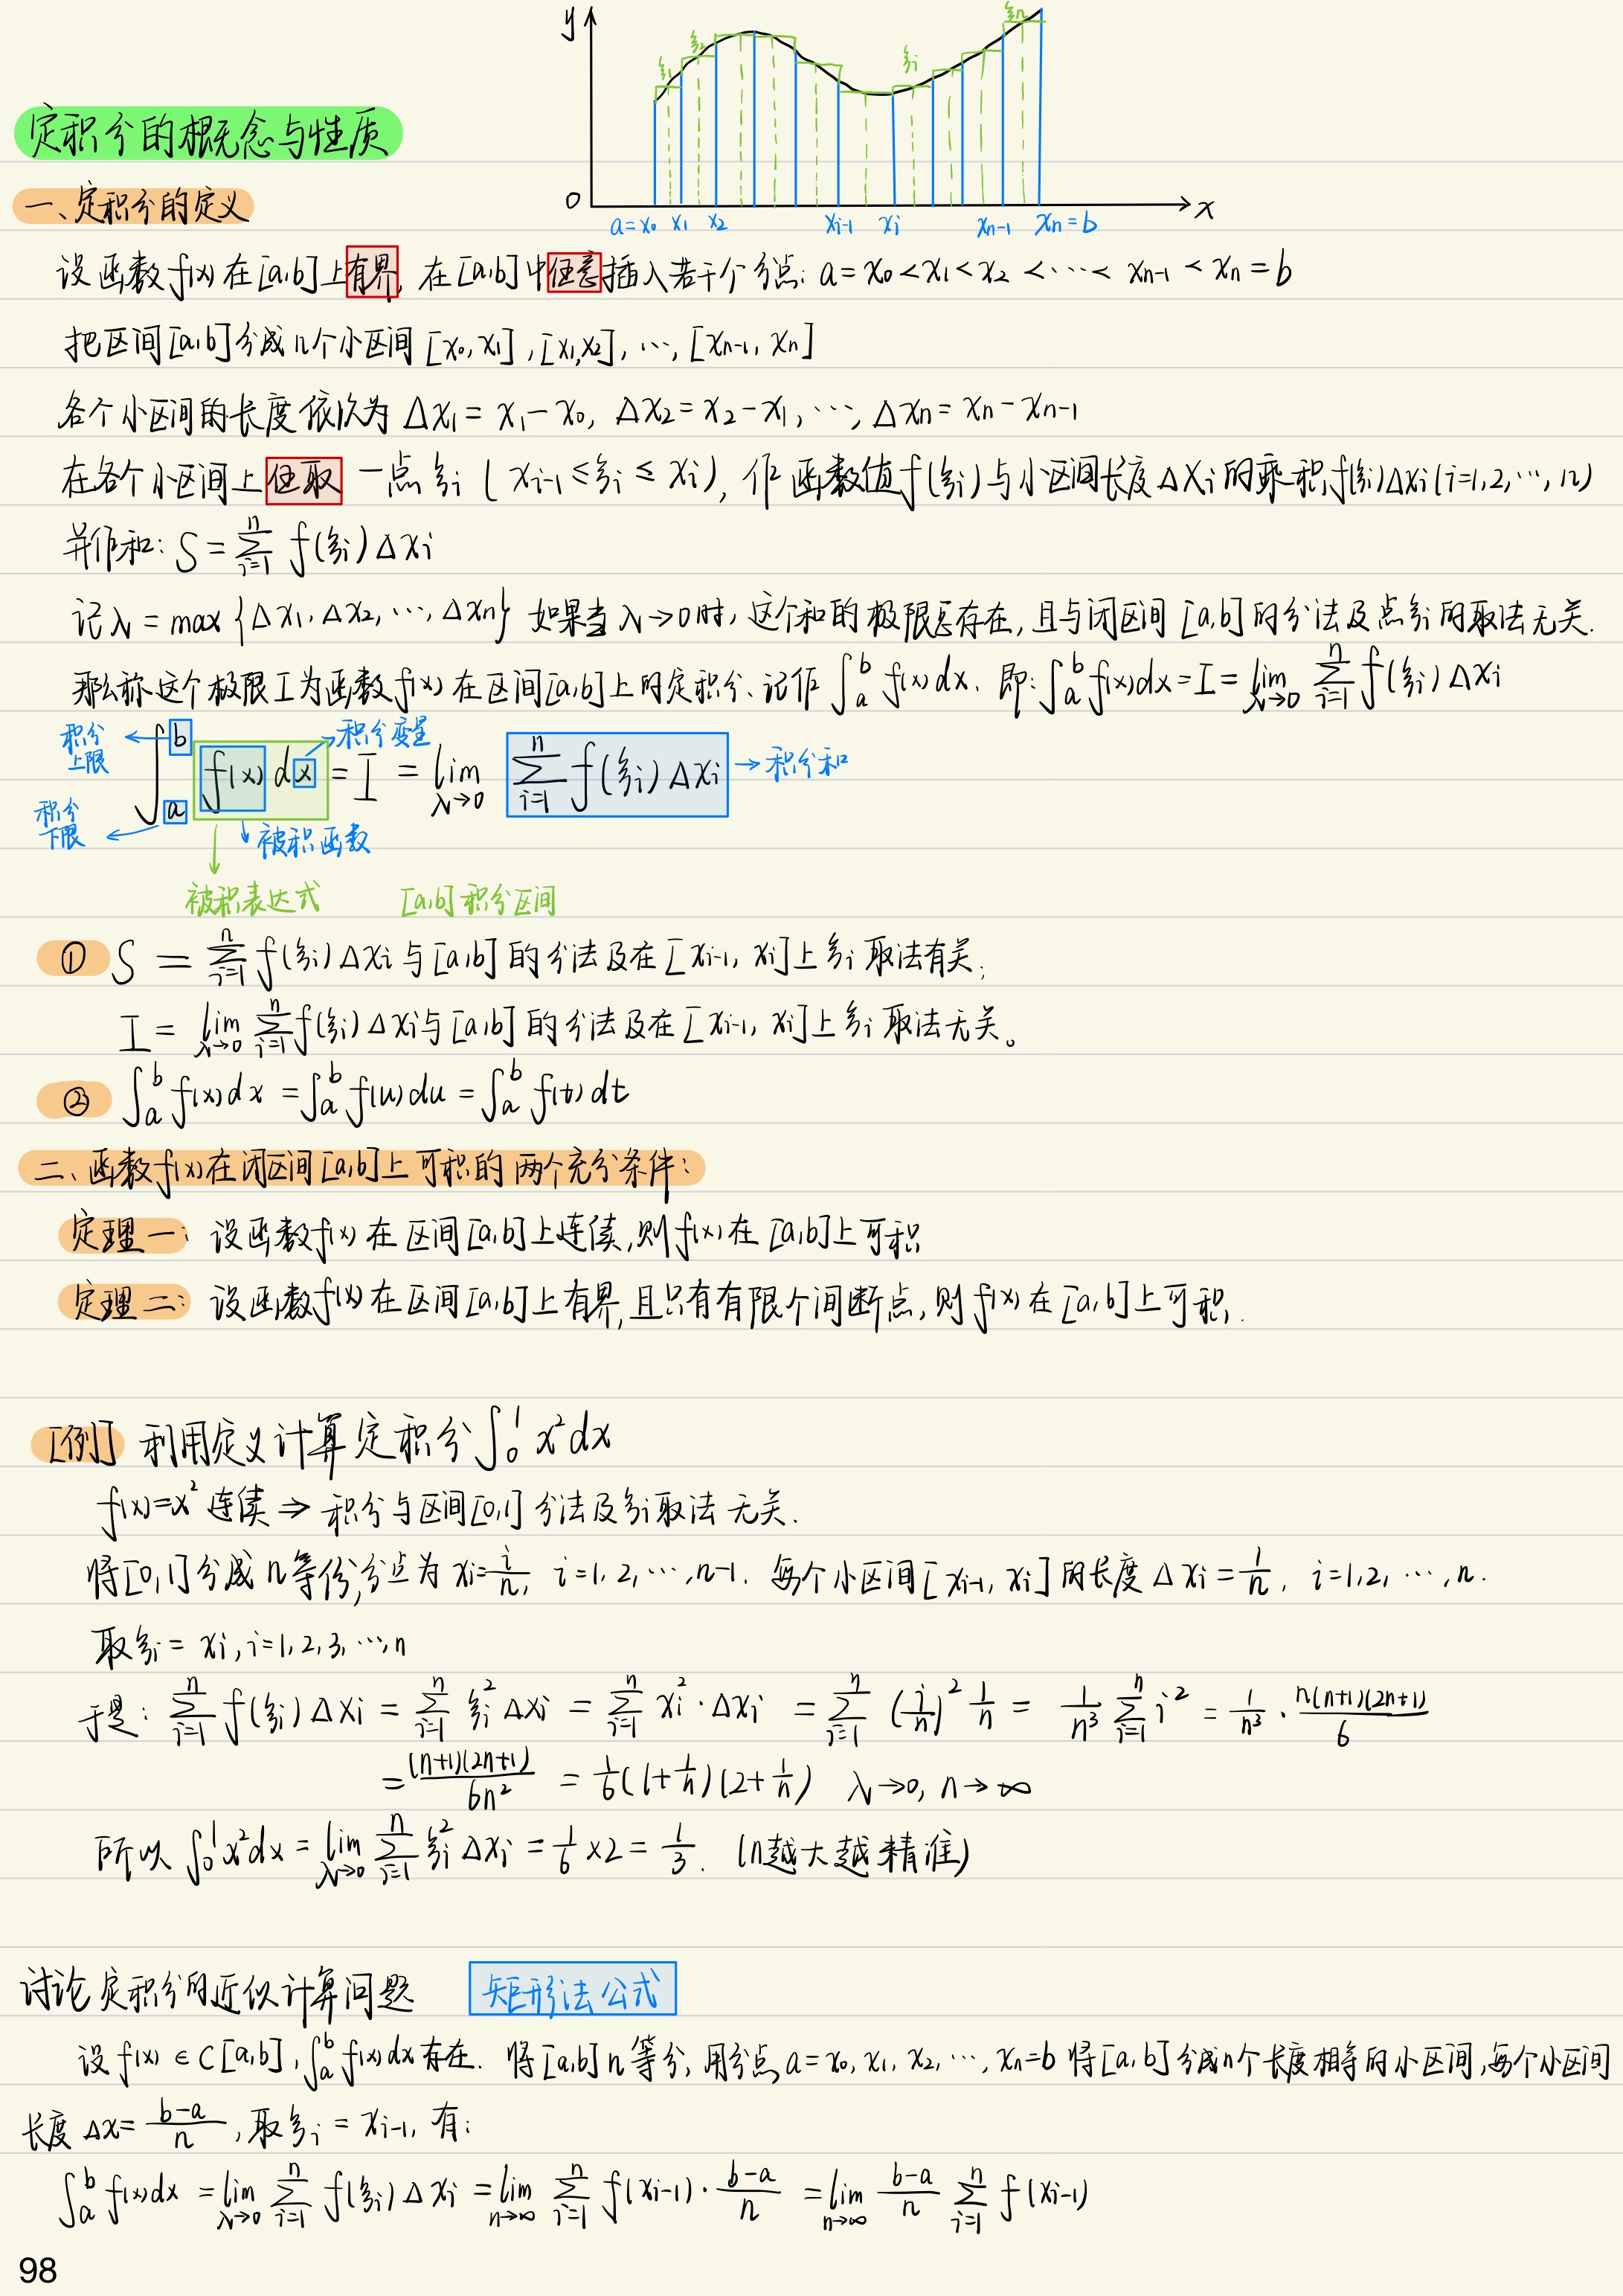 y
ξ₁ ξ₂ ξᵢ ξₙ
定积分的概念与性质
0 x
a=x₀ x₁ x₂ xᵢ₋₁ xᵢ xₙ₋₁ xₙ=b
一、定积分的定义
设函数f(x)在[a,b]上有界, 在[a,b]中任意插入若干个分点: a=x₀<x₁<x₂<⋯<xₙ₋₁<xₙ=b
把区间[a,b]分成n个小区间[x₀,x₁],[x₁,x₂],⋯,[xₙ₋₁,xₙ]
各个小区间的长度依次为 Δx₁=x₁-x₀, Δx₂=x₂-x₁,⋯,Δxₙ=xₙ-xₙ₋₁
在各个小区间上任取一点ξᵢ(xᵢ₋₁≤ξᵢ≤xᵢ), 作函数值f(ξᵢ)与小区间长度Δxᵢ的乘积f(ξᵢ)Δxᵢ(i=1,2,⋯,n)
并作和: S=∑ⁿᵢ₌₁ f(ξᵢ)Δxᵢ
记λ=max{Δx₁,Δx₂,⋯,Δxₙ} 如果当λ→0时, 这个和的极限总存在, 且与闭区间[a,b]的分法及点ξᵢ的取法无关.
那么称这个极限I为函数f(x)在区间[a,b]上的定积分、记作∫ₐᵇf(x)dx. 即: ∫ₐᵇf(x)dx=I=lim λ→0 ∑ⁿᵢ₌₁ f(ξᵢ)Δxᵢ
积分上限 积分变量
∫ₐᵇ f(x)dx = I = lim λ→0 ∑ⁿᵢ₌₁ f(ξᵢ)Δxᵢ →积分和
积分下限 被积函数
被积表达式 [a,b]积分区间
① S=∑ⁿᵢ₌₁ f(ξᵢ)Δxᵢ与[a,b]的分法及在[xᵢ₋₁,xᵢ]上ξᵢ取法有关;
I=lim λ→0 ∑ⁿᵢ₌₁ f(ξᵢ)Δxᵢ与[a,b]的分法及在[xᵢ₋₁,xᵢ]上ξᵢ取法无关。
② ∫ₐᵇf(x)dx=∫ₐᵇf(u)du=∫ₐᵇf(t)dt
二、函数f(x)在闭区间[a,b]上可积的两个充分条件:
定理一: 设函数f(x)在区间[a,b]上连续,则f(x)在[a,b]上可积
定理二: 设函数f(x)在区间[a,b]上有界,且只有有限个间断点,则f(x)在[a,b]上可积.
[例] 利用定义计算定积分∫₀¹x²dx
f(x)=x²连续⇒积分与区间[0,1]分法及ξᵢ取法无关.
将[0,1]分成n等份,分点为xᵢ=i/n, i=1,2,⋯,n-1. 每个小区间[xᵢ₋₁,xᵢ]的长度Δxᵢ=1/n, i=1,2,⋯,n.
取ξᵢ=xᵢ,i=1,2,3,⋯,n
于是: ∑ⁿᵢ₌₁ f(ξᵢ)Δxᵢ=∑ⁿᵢ₌₁ ξᵢ²Δxᵢ=∑ⁿᵢ₌₁ xᵢ²·Δxᵢ=∑ⁿᵢ₌₁ (i/n)² 1/n=1/n³ ∑ⁿᵢ₌₁ i²=1/n³·n(n+1)(2n+1)/6
=(n+1)(2n+1)/6n²=1/6(1+1/n)(2+1/n) λ→0, n→∞
所以∫₀¹x²dx=lim λ→0 ∑ⁿᵢ₌₁ ξᵢ²Δxᵢ=1/6×2=1/3. (n越大越精准)
讨论定积分的近似计算问题 矩形法公式
设f(x)∈C[a,b],∫ₐᵇf(x)dx存在. 将[a,b]n等分, 用分点a=x₀,x₁,x₂,⋯,xₙ=b将[a,b]分成n个长度相等的小区间,每个小区间
长度Δx=b-a/n,取ξᵢ=xᵢ₋₁,有:
∫ₐᵇf(x)dx=lim λ→0 ∑ⁿᵢ₌₁ f(ξᵢ)Δxᵢ=lim n→∞ ∑ⁿᵢ₌₁ f(xᵢ₋₁)·b-a/n=lim n→∞ b-a/n ∑ⁿᵢ₌₁ f(xᵢ₋₁)
98